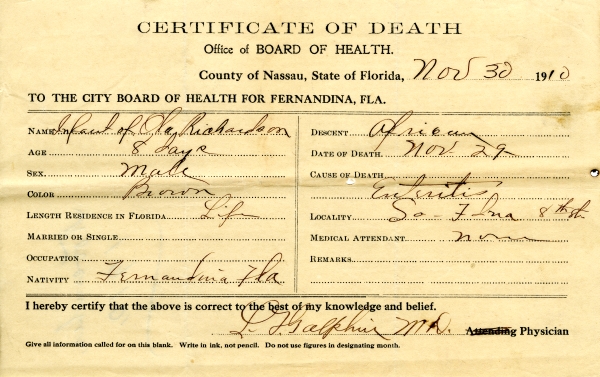 CERTIFICATE OF DEATH
Office of BOARD OF HEALTH.
County of Nassau, State of Florida, Nov 30 1910
TO THE CITY BOARD OF HEALTH FOR FERNANDINA, FLA.
NAME Infant of Ola Richardson
AGE 8 days
SEX. Male
COLOR Brown
LENGTH RESIDENCE IN FLORIDA Life
MARRIED OR SINGLE
OCCUPATION
NATIVITY Fernandina Fla
DESCENT African
DATE OF DEATH Nov 29
CAUSE OF DEATH
Enteritis
LOCALITY So - Fdna 8th st.
MEDICAL ATTENDANT none
REMARKS
I hereby certify that the above is correct to the best of my knowledge and belief.
Galphin M.D. Attending Physician
Give all information called for on this blank. Write in ink, not pencil. Do not use figures in designating month.